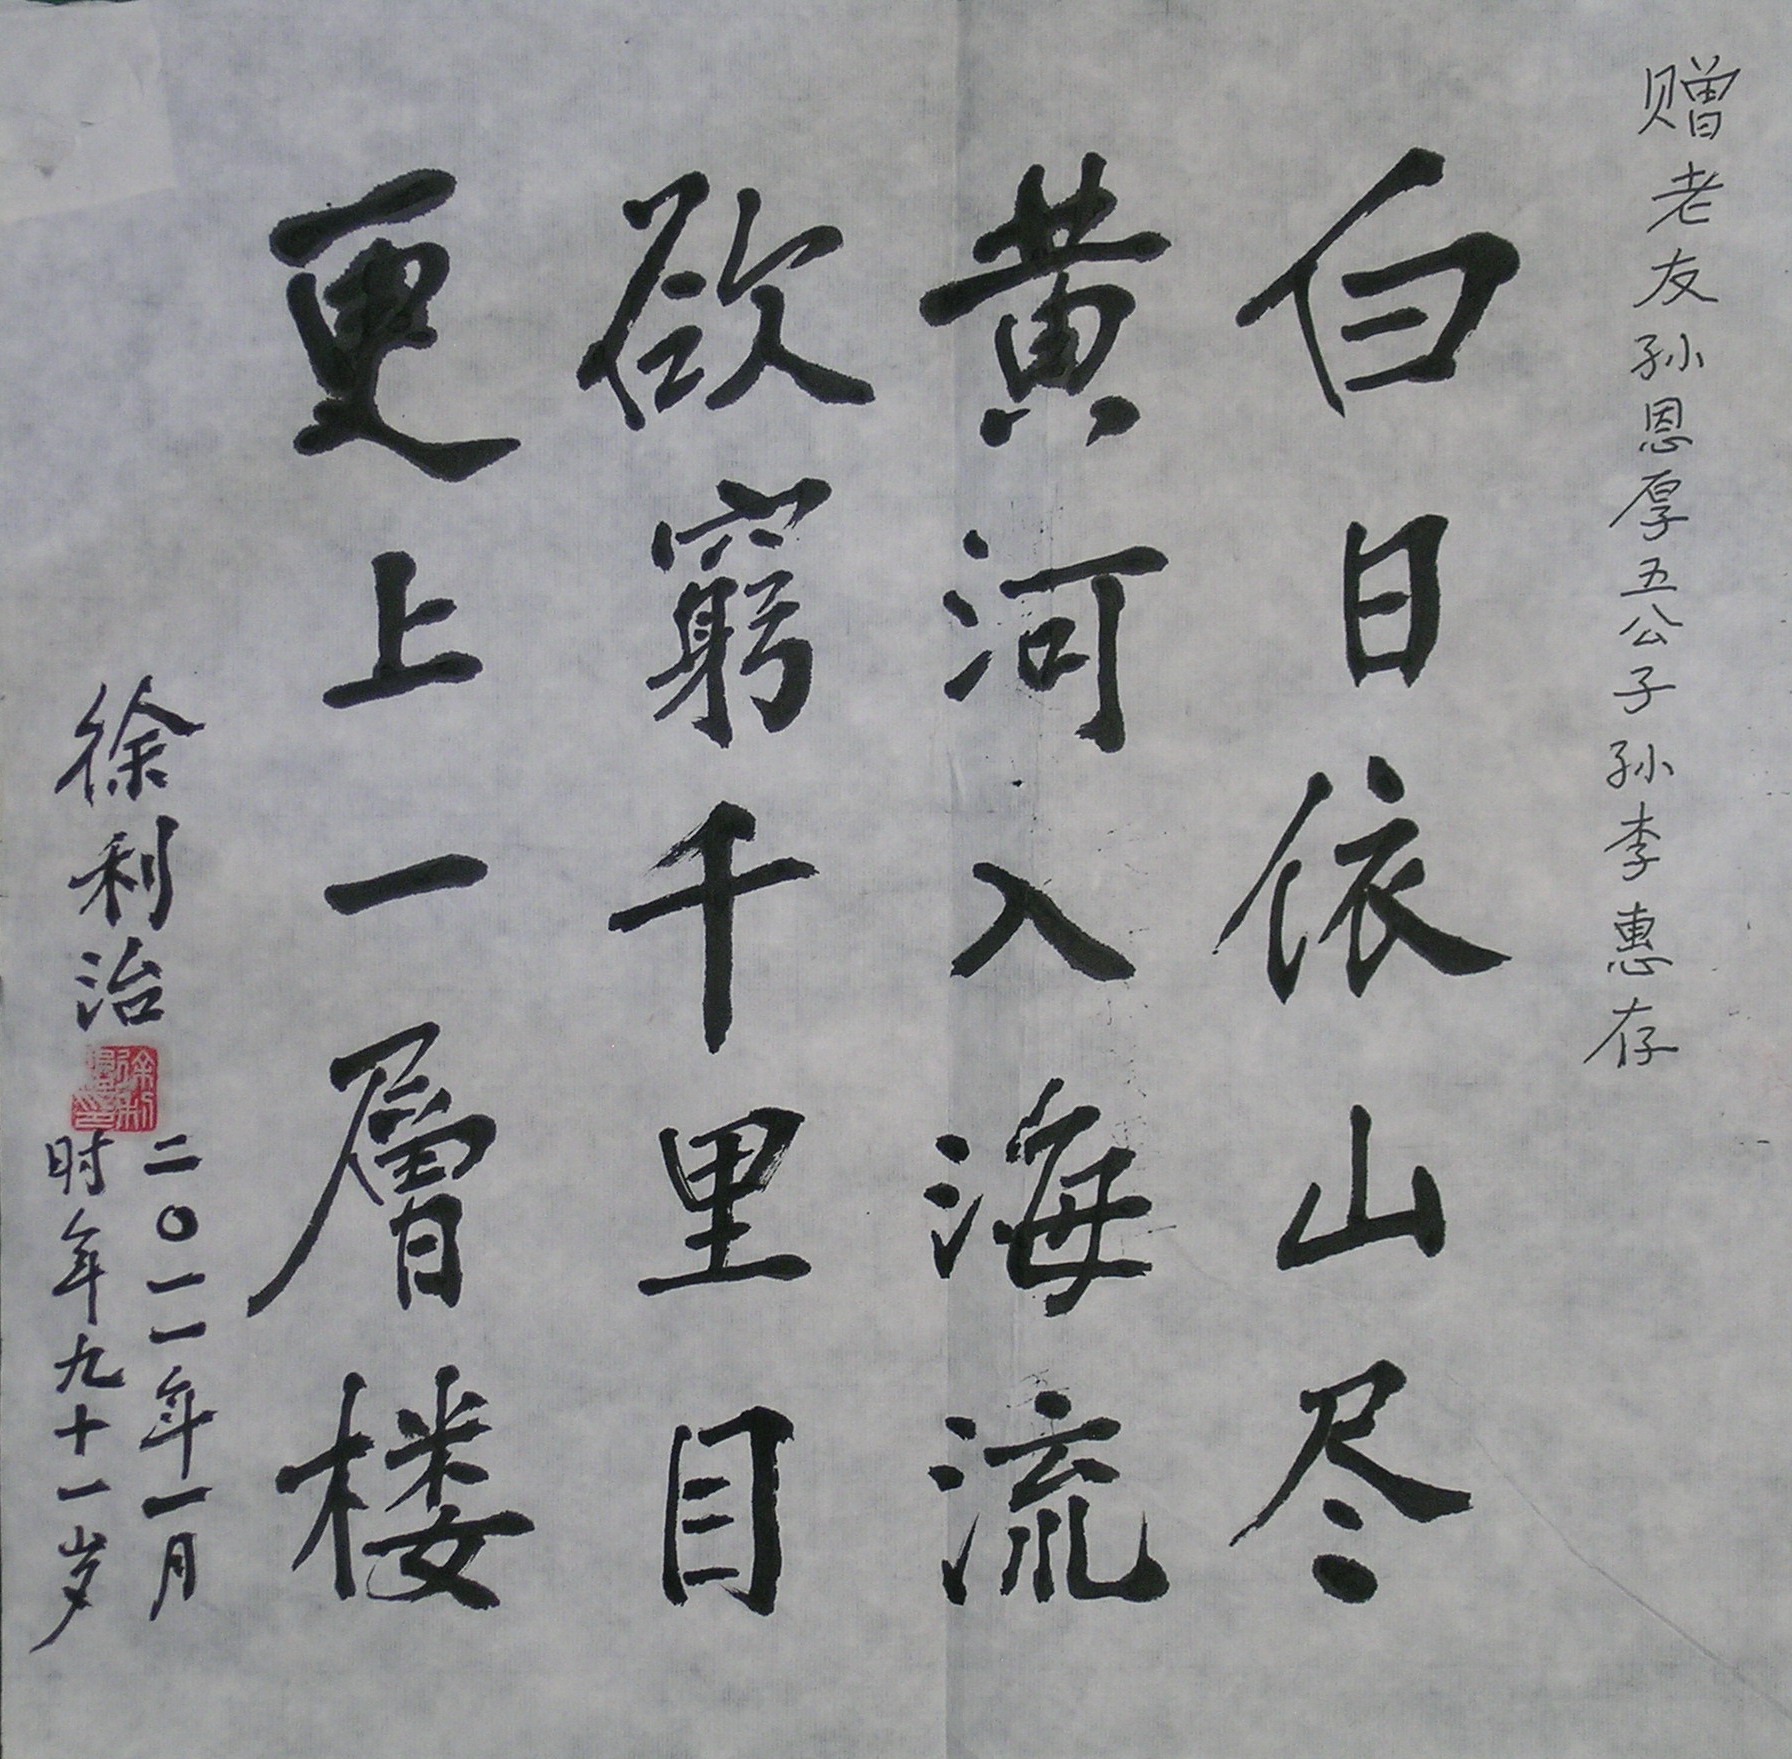 赠老友孙恩厚五公子孙李惠存
白日依山尽
黄河入海流
欲窮千里目
更上一層楼
徐利治
二〇一一年一月
时年九十一岁